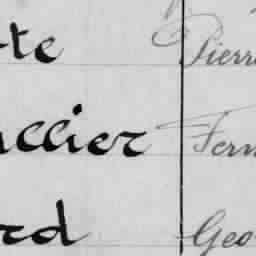 te Pierr
llier Fern
rd Geo